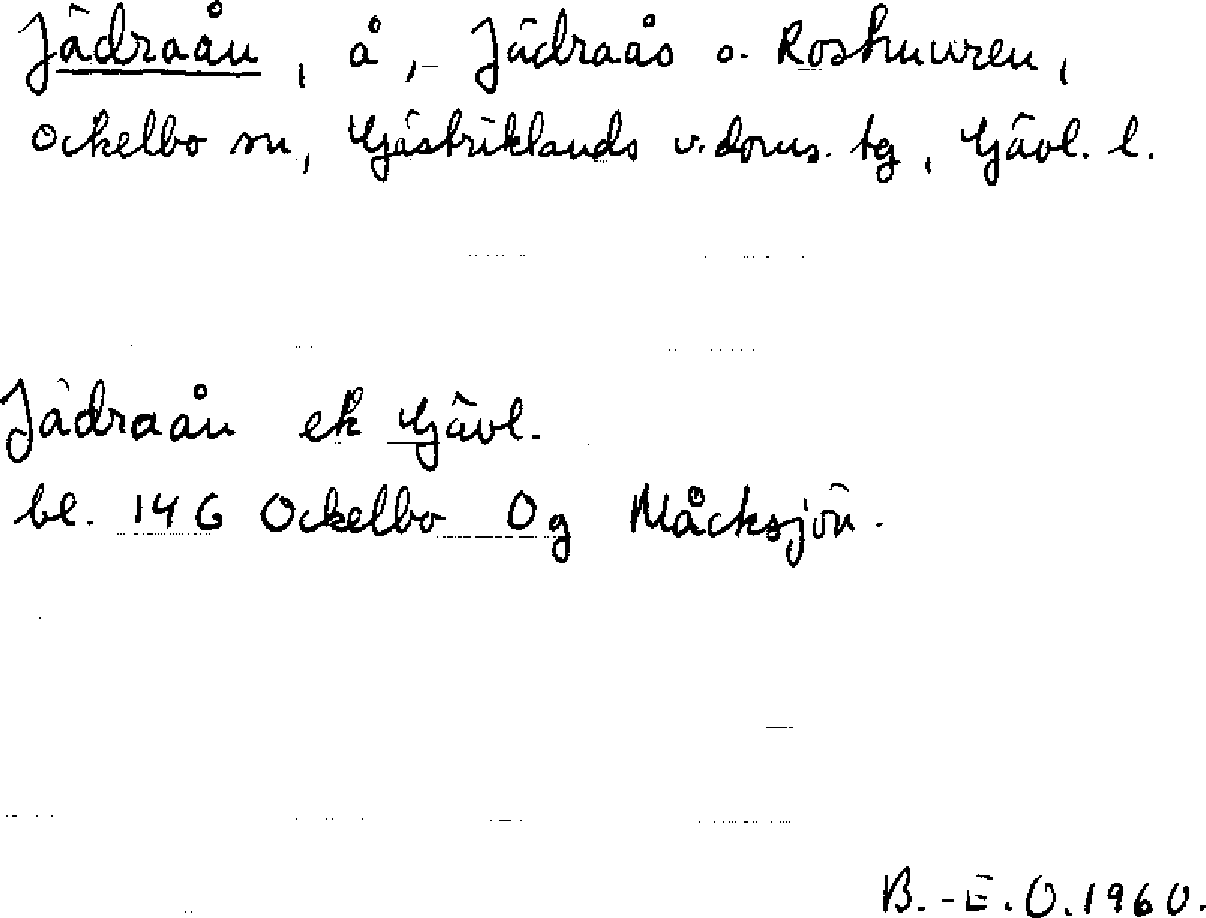 Jädraån, å, Jädraås o. Roskmuren,
Ockelbo sn, Gästriklands v. doms. tg, Gävl. l.
Jädraån ek Gävl.
bl. 14G Ockelbo 0g Måcksjön.
B.-E. O. 1960.